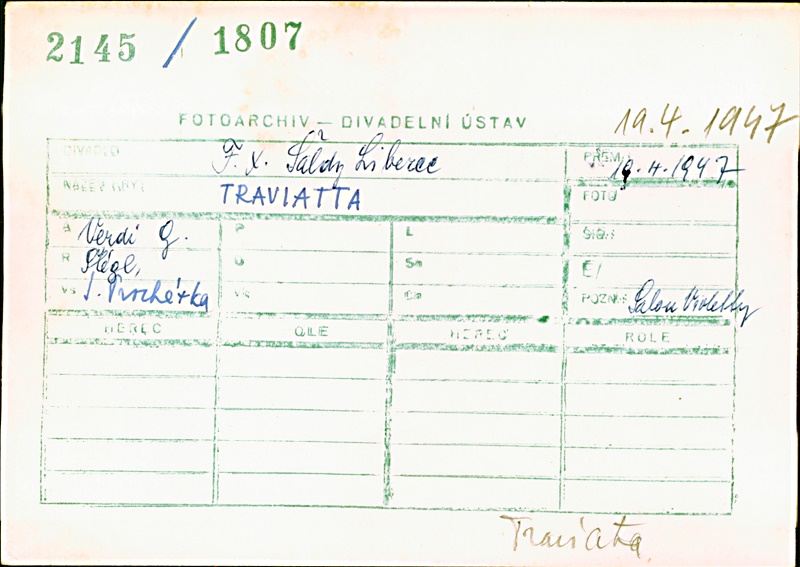 2145 / 1807
FOTOARCHIV — DIVADELNÍ ÚSTAV
19.4.1947
DIVADLO F. X. Šaldy Liberec
PREM. 19.4.1947
NÁZEV HRY TRAVIATTA
FOTO
A Verdi G.
P
L
SIGN
R
O
Sn
E/
VS J. Procházka
VS
POZN. Salon Violetty
HEREC
OLE
HEREC
ROLE
Traviata